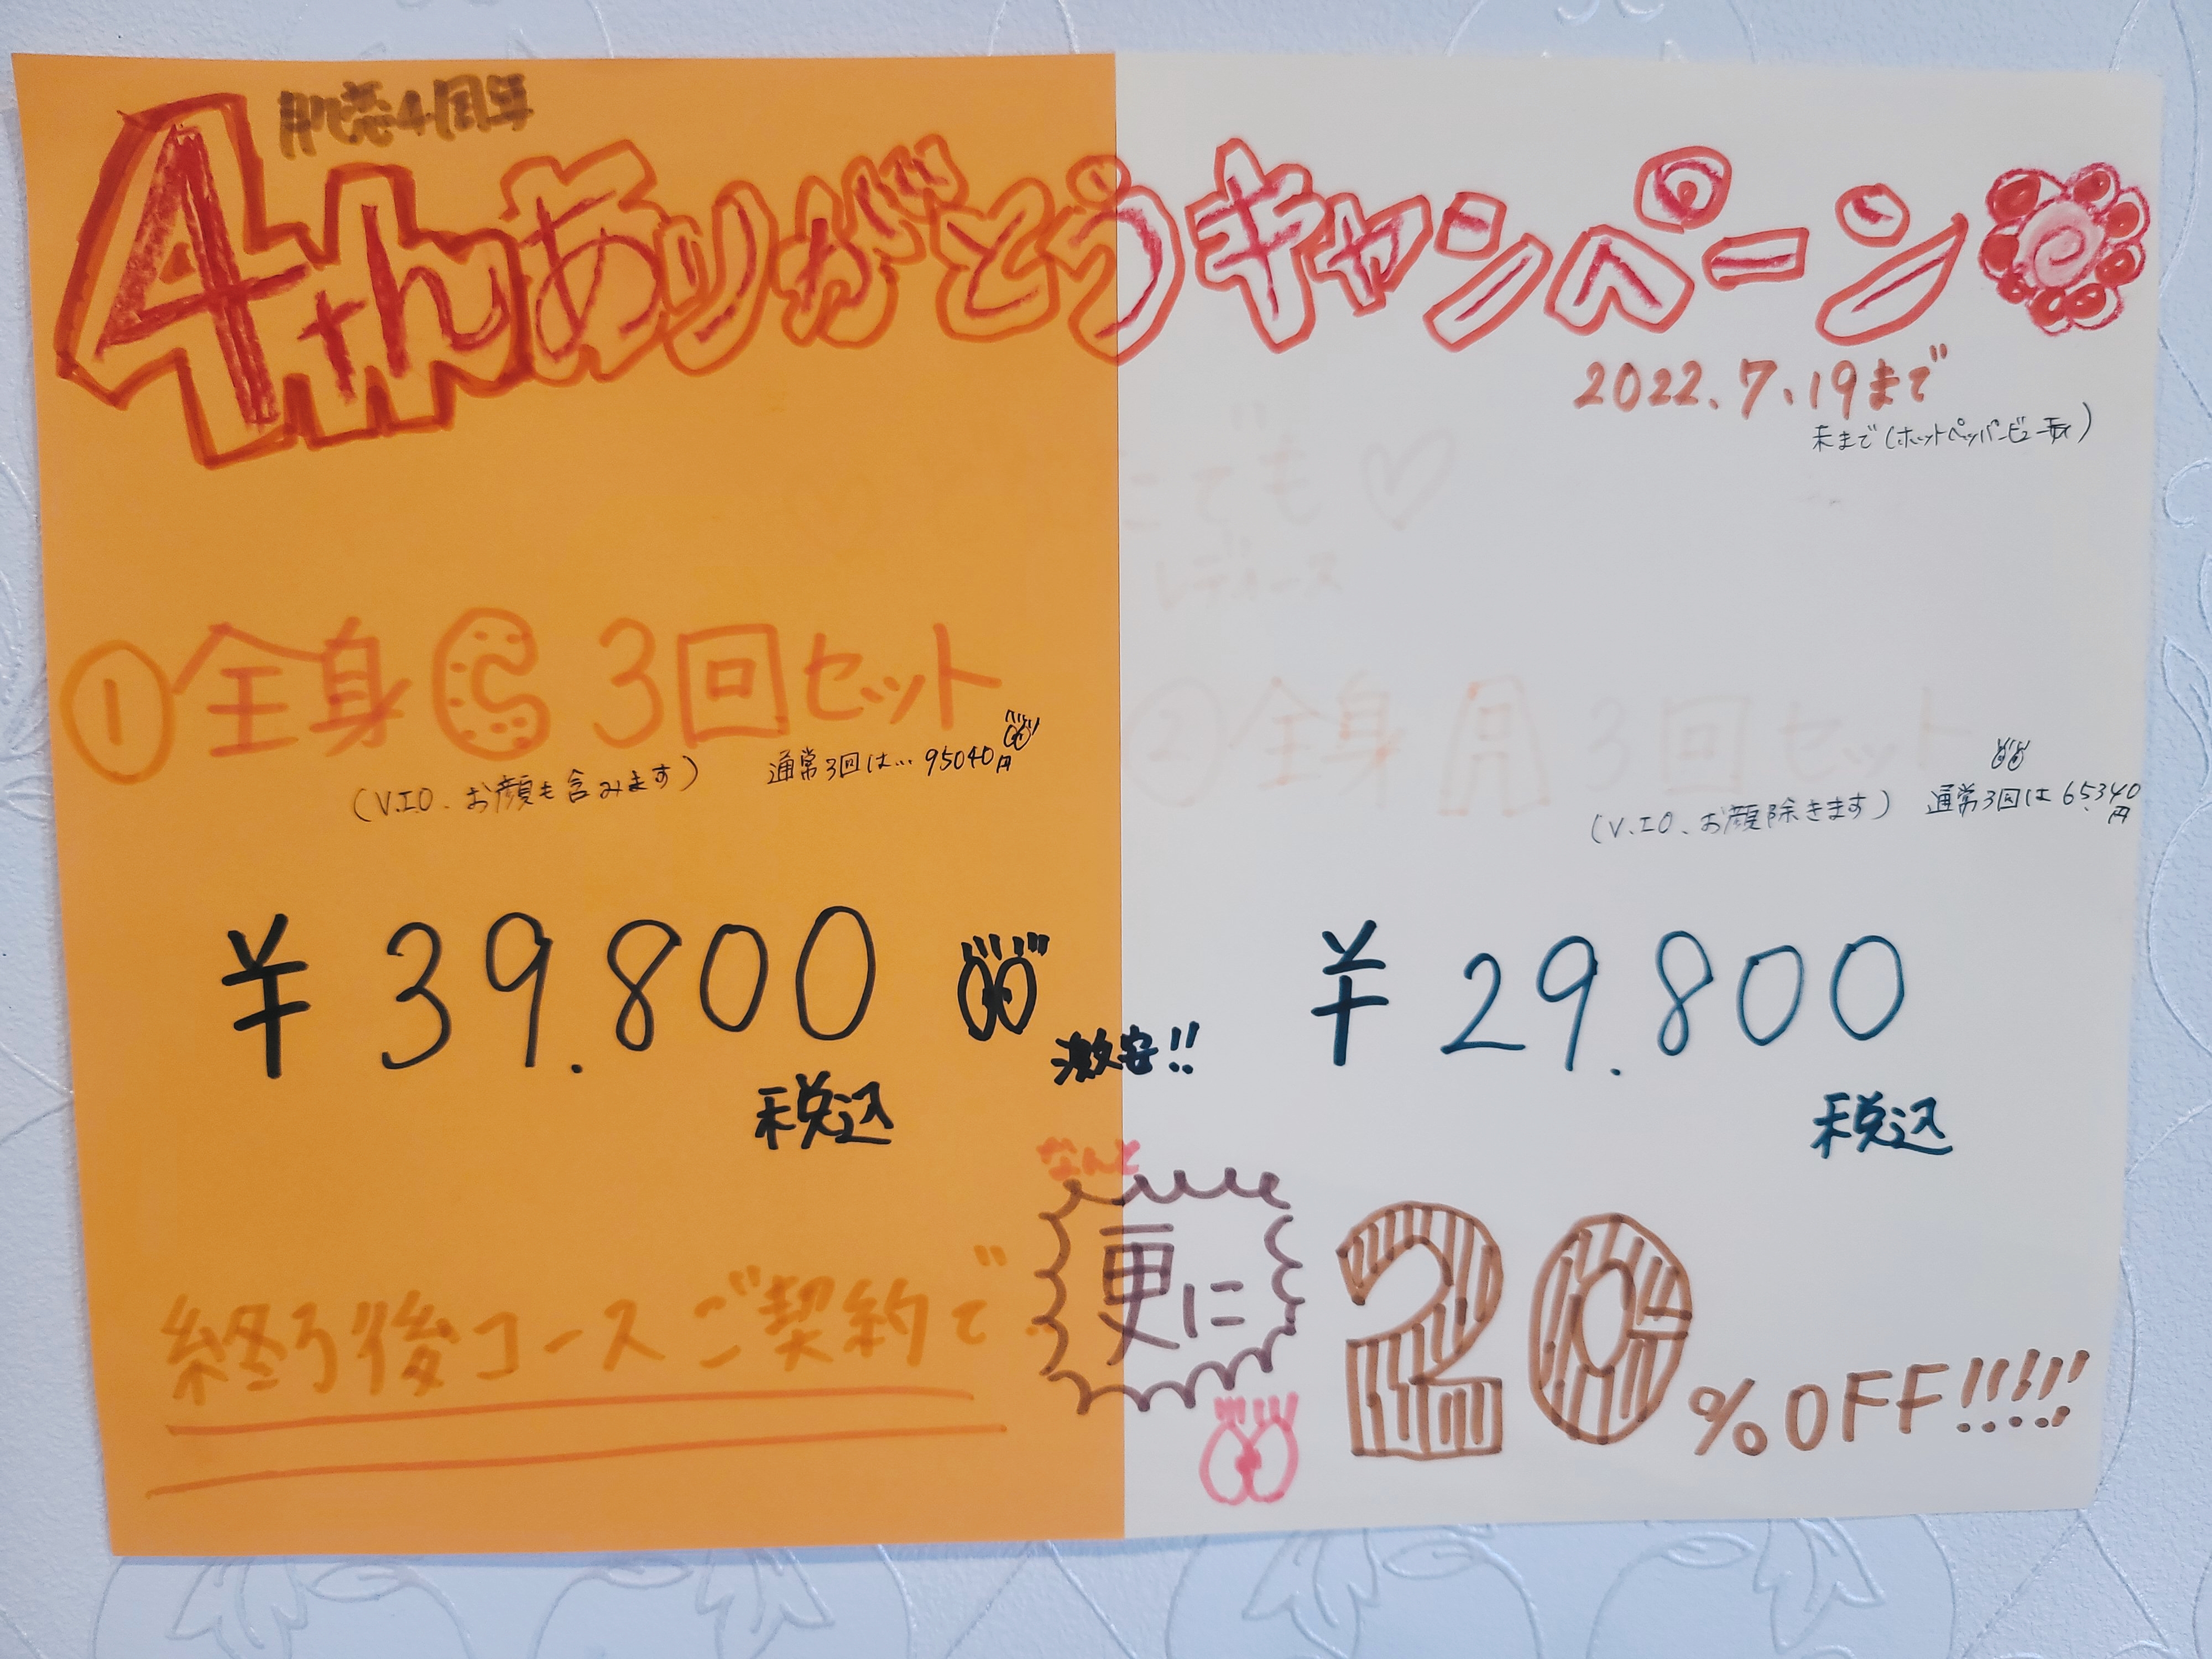 肌恋4周年
4thありがとうキャンペーン
2022.7.19まで
末まで(ホットペッパービューティ)
こでも♡
レディース
①全身 3回セット
(V.I.O.お顔も含みます) 通常3回は…95040円
②全身 3回セット
(V.I.O.お顔除きます) 通常3回は65340円
¥39.800
税込
激安!!
¥29.800
税込
なんと
終了後コースご契約で
更に
20%OFF!!!!!